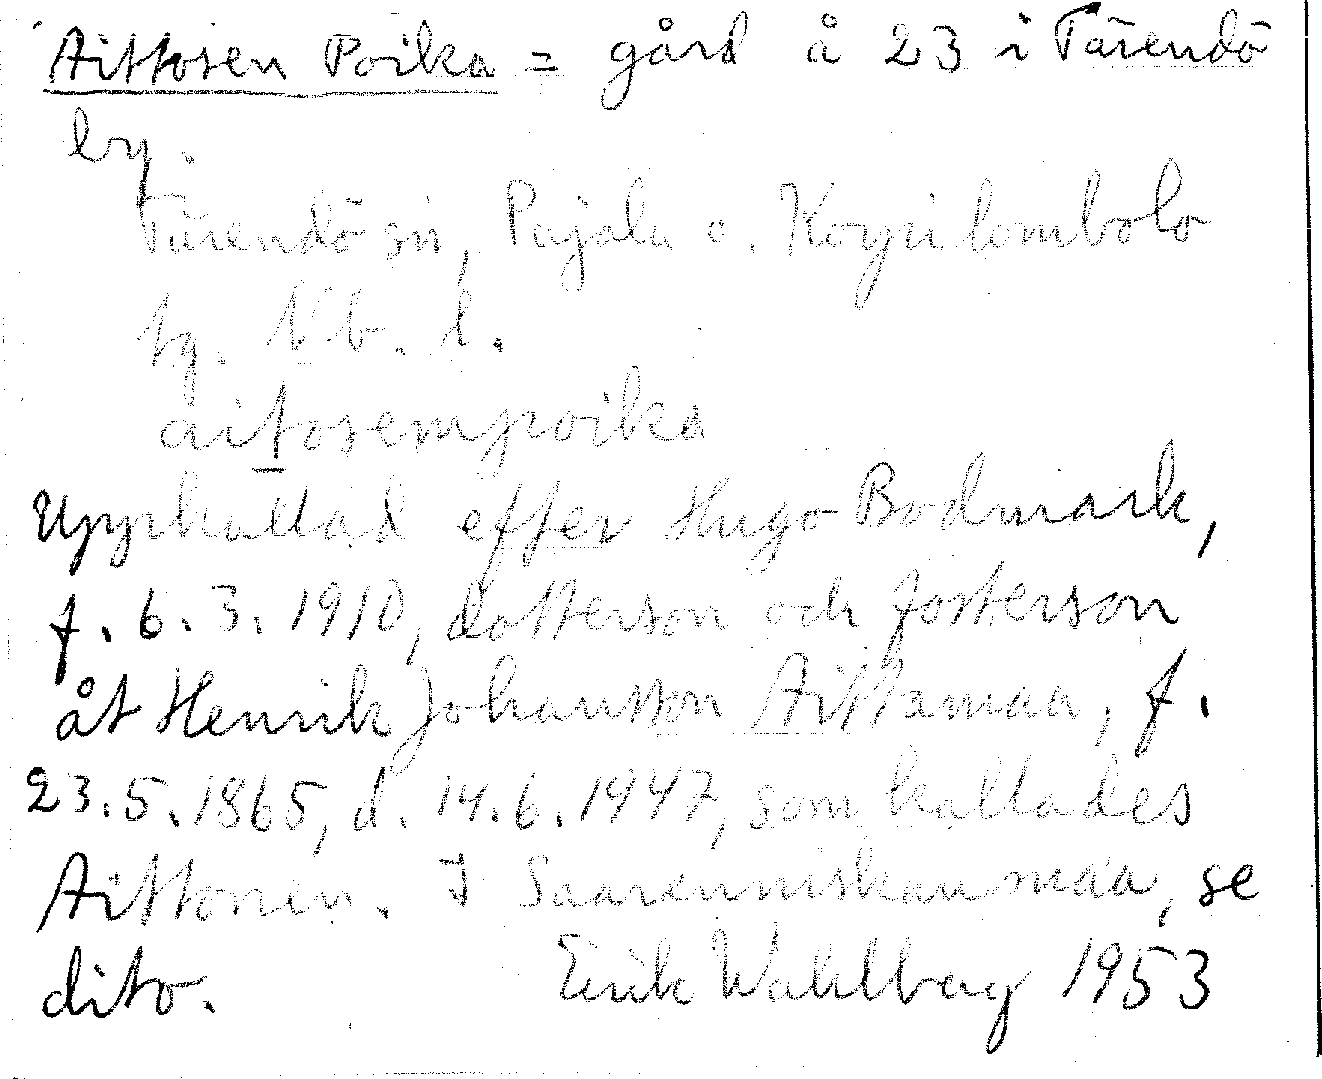 Aittosen Poika = gård å 23 i Tärendö
by.
Tärendö sn, Pajala o. Korpilombolo
tg. Nb. l.
aitosempoika
Uppkallad efter Hugo Bodmark,
f. 6.3.1910, dotterson och fosterson
åt Henrik Johansson Aittamaa, f.
23.5.1865, d. 14.6.1947, som kallades
Aittonen. I Saarenniskanmaa, se
dito. Erik Wahlberg 1953